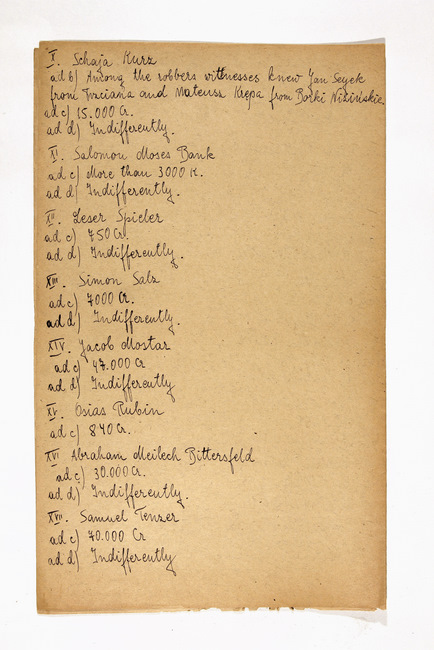 X. Schaja Kurz
ad b) Among the robbers witnesses knew Jan Seyek
from Trzciana and Mateusz Krępa from Borki Nizińskie.
ad c) 15.000 Cr.
ad d) Indifferently.
XI. Salomon Moses Bank
ad c) More than 3000 K.
ad d) Indifferently.
XII. Leser Spieler
ad c) 750 Cr.
ad d) Indifferently.
XIII. Simon Salz
ad c) 7000 Cr.
ad d) Indifferently.
XIV. Jacob Mostar
ad c) 47.000 Cr
ad d) Indifferently
XV. Osias Rubin
ad c) 840 Cr.
XVI Abraham Meilech Bittersfeld
ad c) 30.000 Cr.
ad d) Indifferently.
XVII. Samuel Tenzer
ad c) 70.000 Cr
ad d) Indifferently